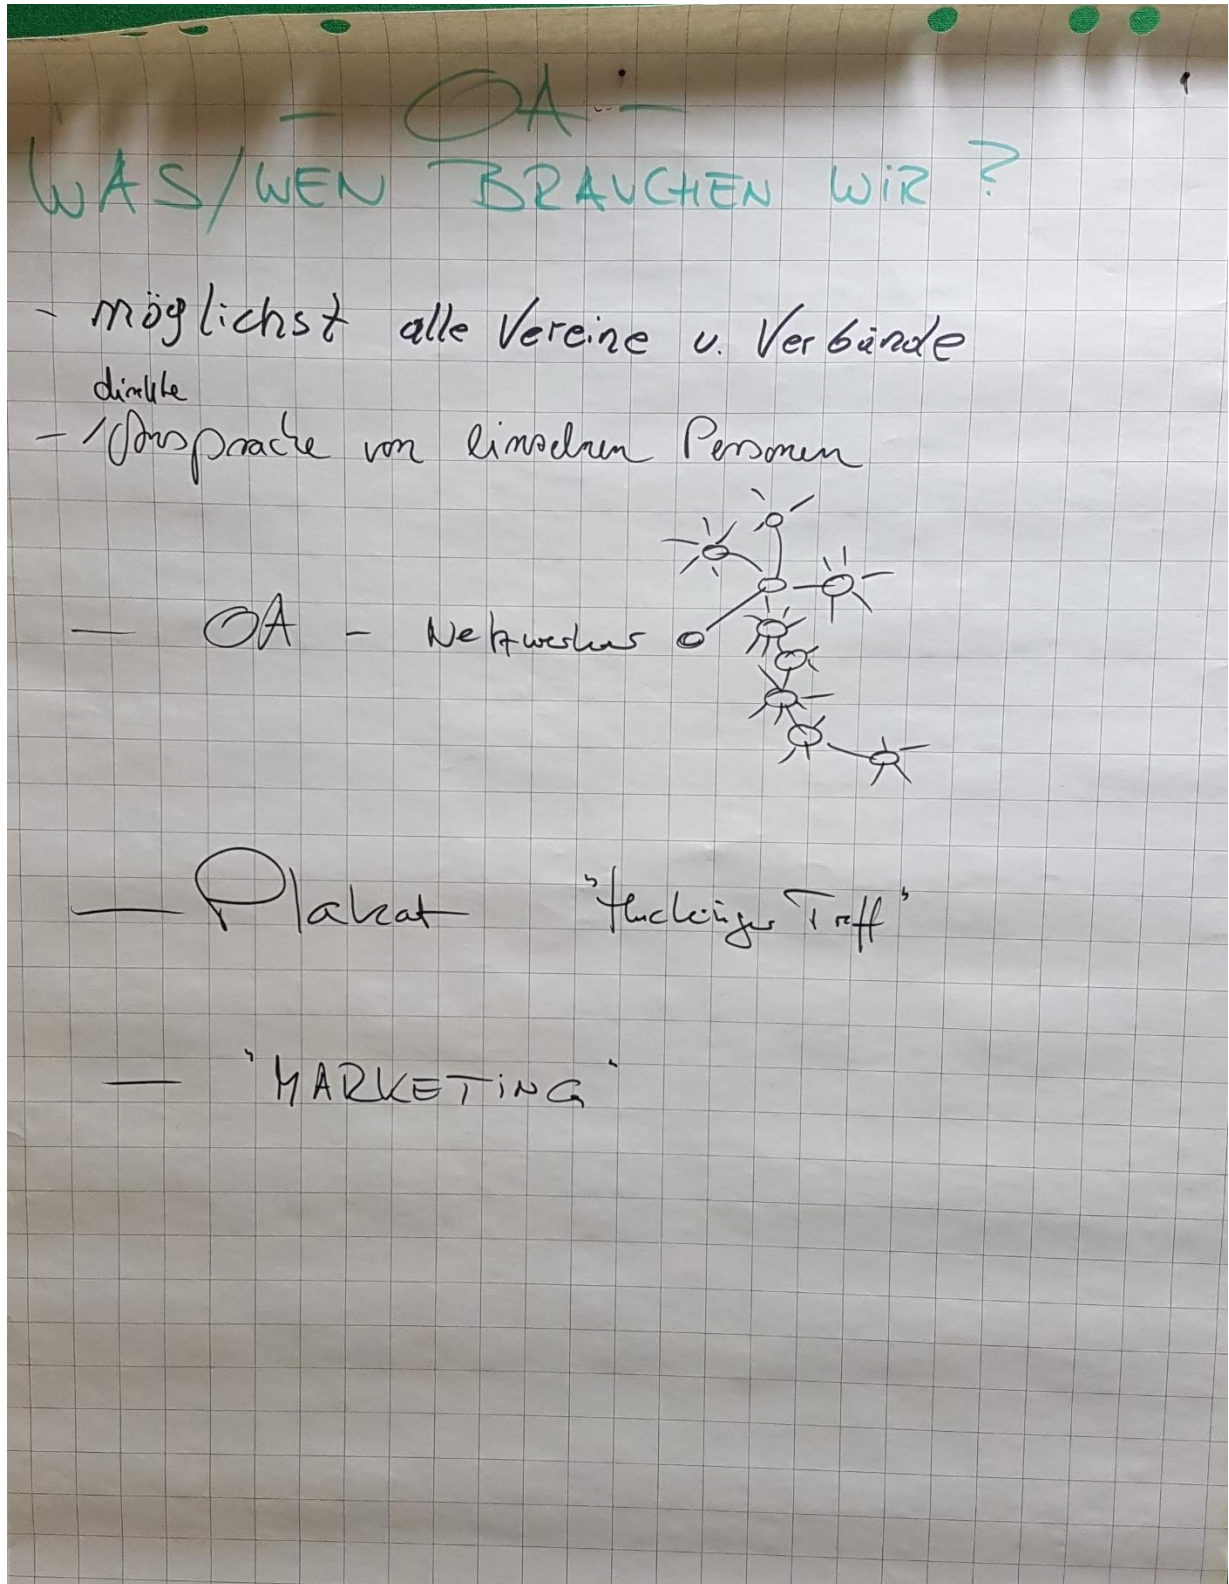 - OA -
WAS/WEN BRAUCHEN WIR ?
- möglichst alle Vereine u. Verbände
direkte
- Ansprache von einzelnen Personen
- OA - Netzwerker
- Plakat "Huckinger Treff"
- "MARKETING"